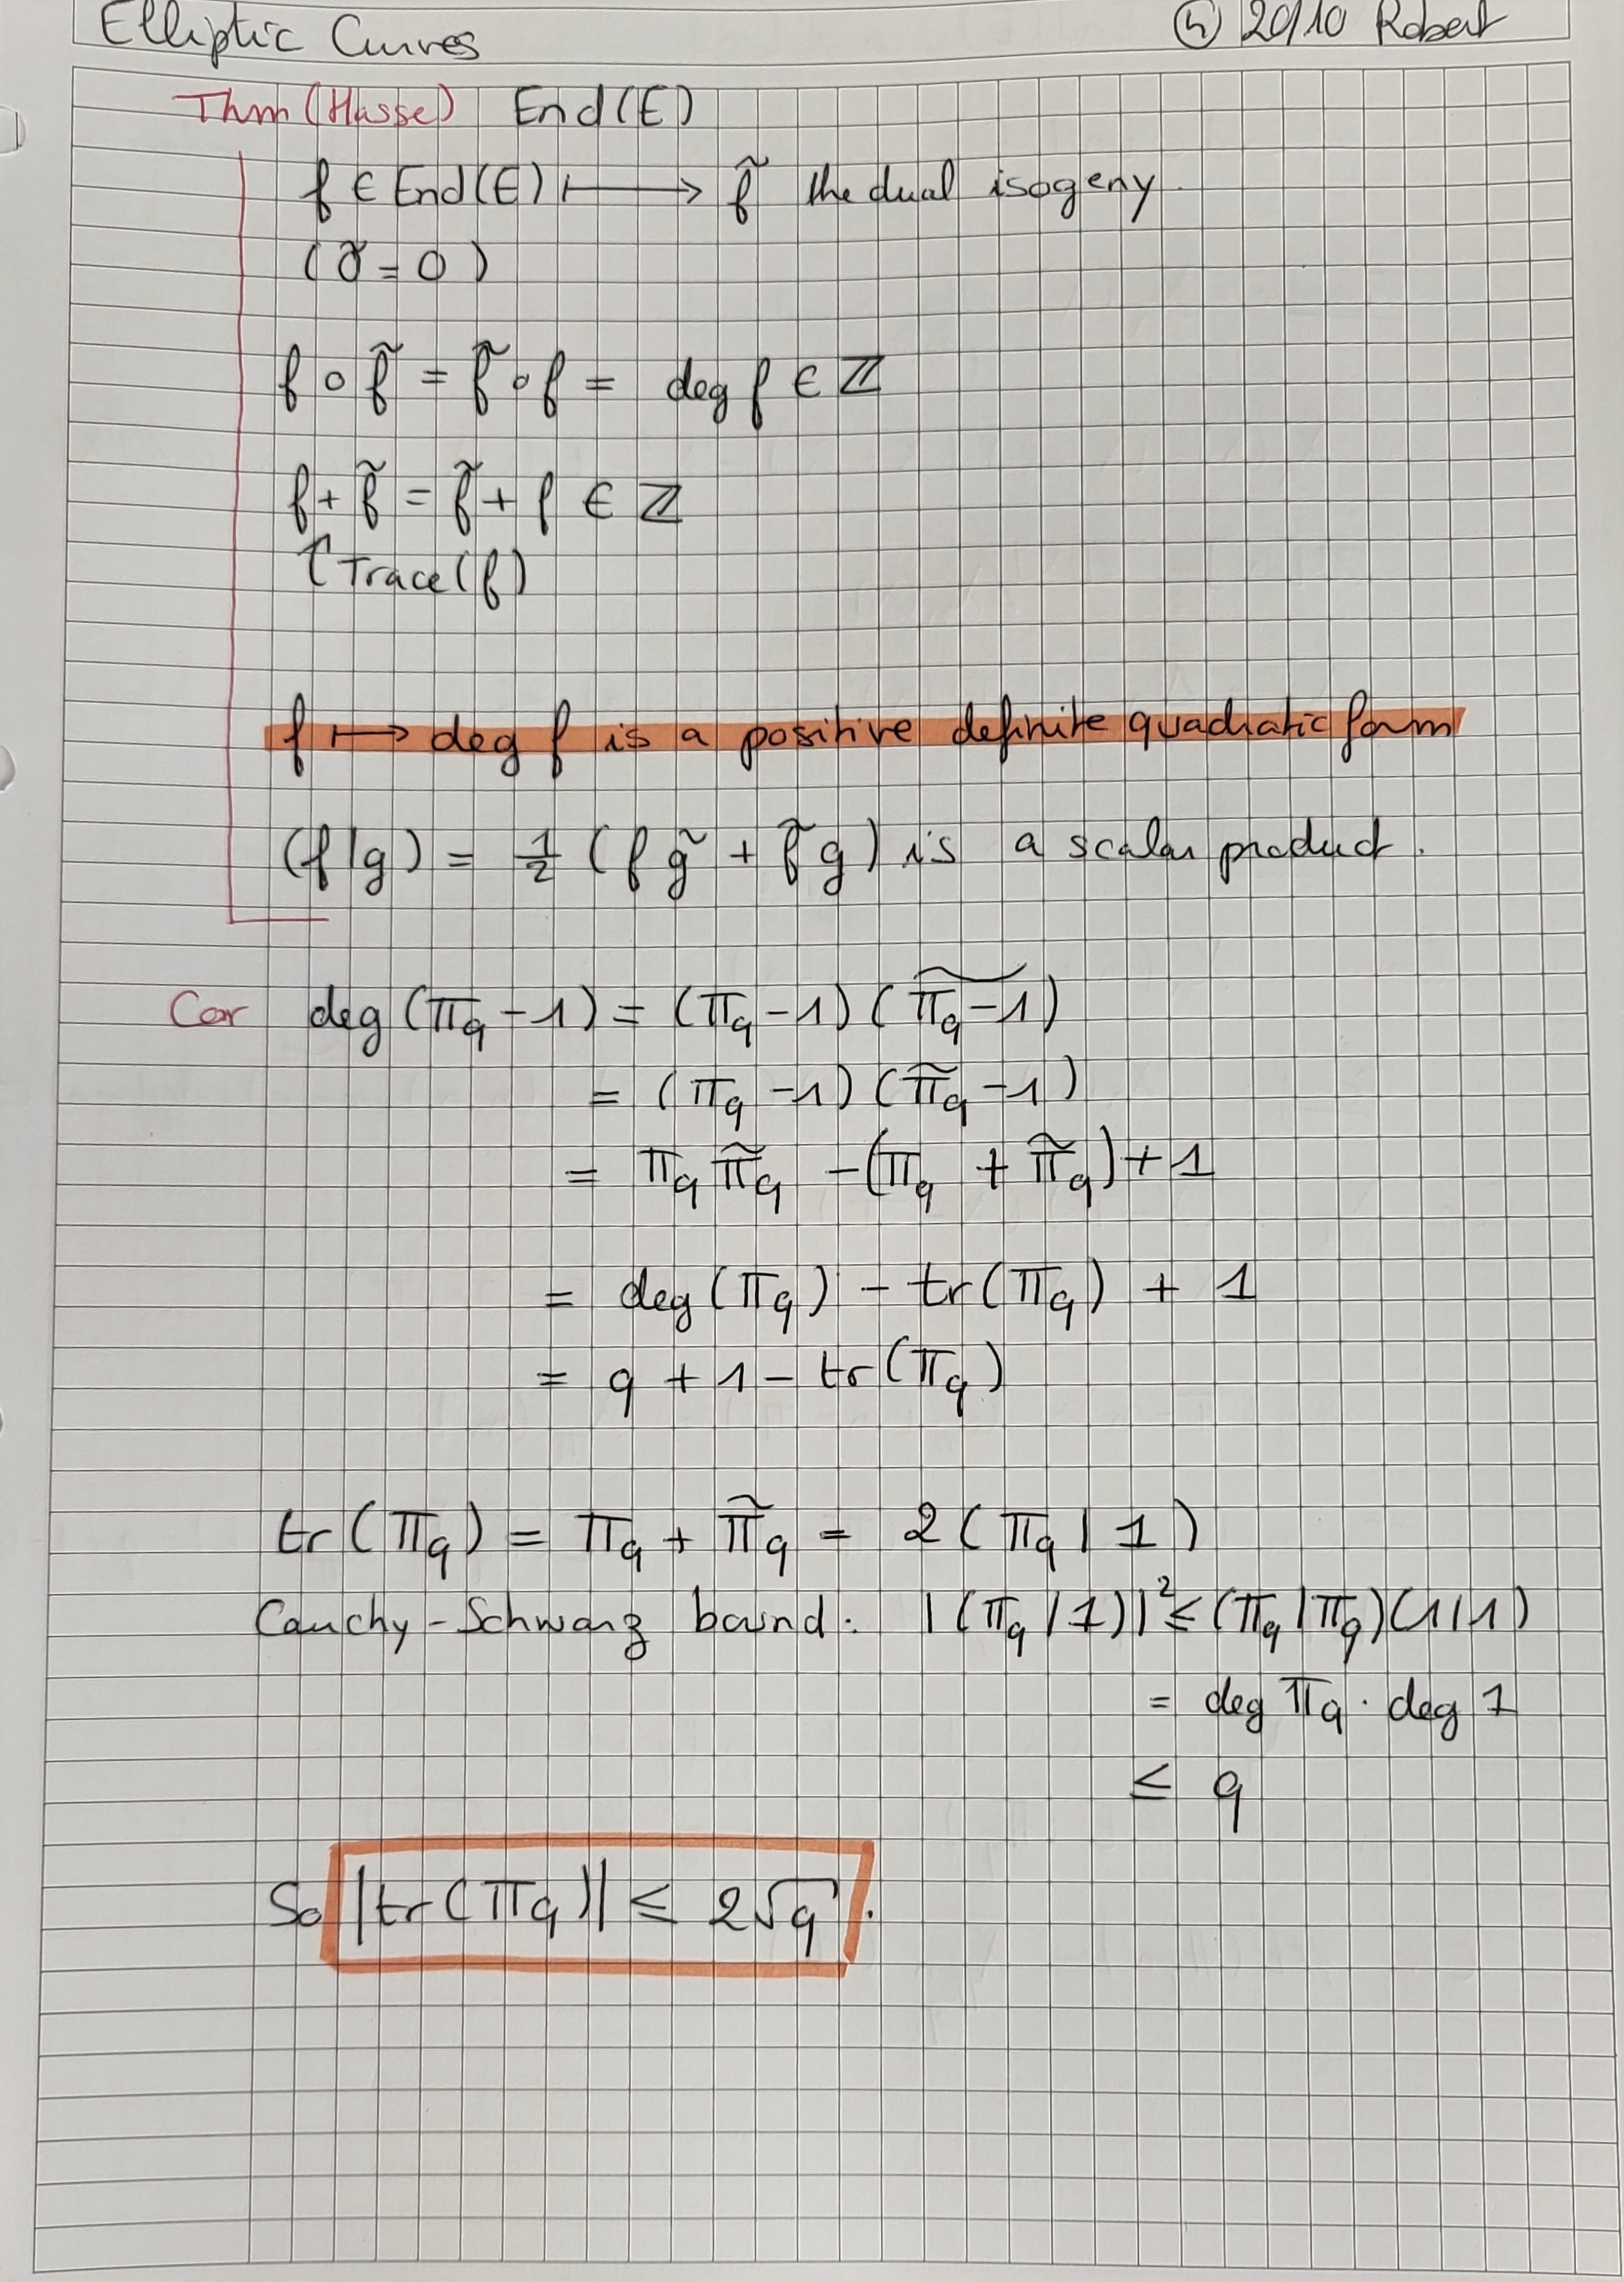 Elliptic Curves ④ 20/10 Robert
Thm (Hasse) End(E)
f ∈ End(E) ⟼ f̃ the dual isogeny.
(0̃ = 0)
f ∘ f̃ = f̃ ∘ f = deg f ∈ ℤ
f + f̃ = f̃ + f ∈ ℤ
↑ Trace(f)
f ⟼ deg f is a positive definite quadratic form
(f|g) = ½ (f g̃ + f̃ g) is a scalar product.
Cor deg (π_q − 1) = (π_q − 1) (\widetilde{π_q − 1})
= (π_q − 1) (π̃_q − 1)
= π_q π̃_q − (π_q + π̃_q) + 1
= deg(π_q) − tr(π_q) + 1
= q + 1 − tr(π_q)
tr(π_q) = π_q + π̃_q = 2 (π_q | 1)
Cauchy-Schwarz bound: |(π_q | 1)|² ≤ (π_q | π_q)(1|1)
= deg π_q · deg 1
≤ q
So |tr(π_q)| ≤ 2√q.